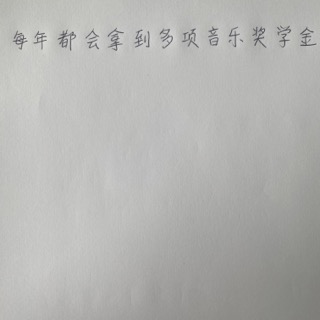 每年都会拿到多项音乐奖学金